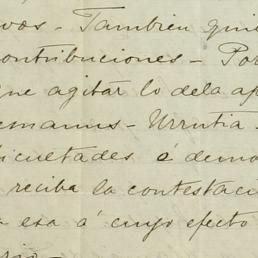 vos - Tambien qui
ontribuciones - Por
que agitar lo dela ap
emanns - Urrutia
icultades é demo
reciba la contestaci
a esa á cuyo efecto